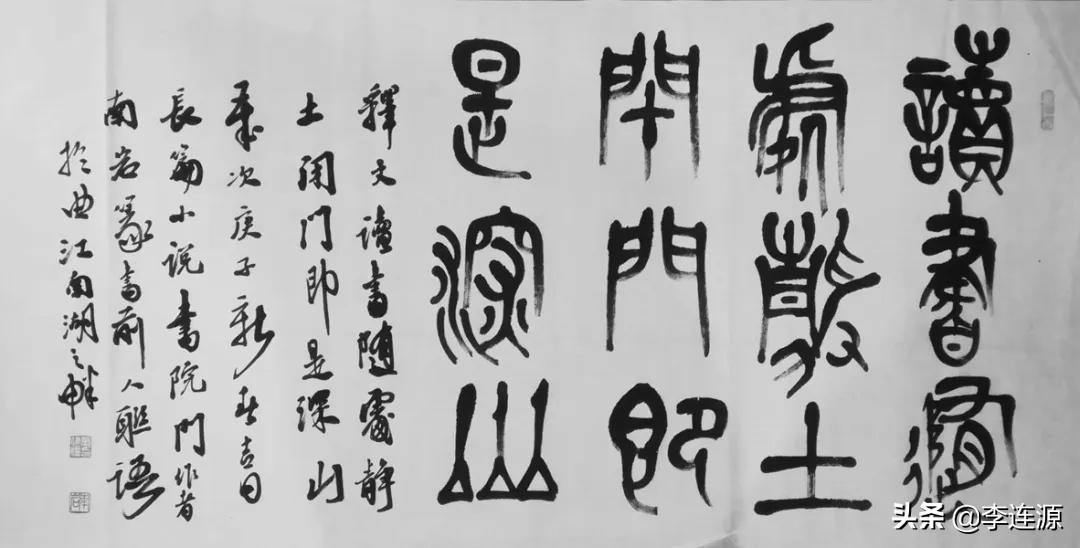 讀書隨
處土
閉門即
是深山
釋文讀書隨處静
土閉門即是深山
歲次庚子新春吉日
長篇小说書院門作者
南岩篆書前人聯语
於曲江南湖之畔
头条 @李连源